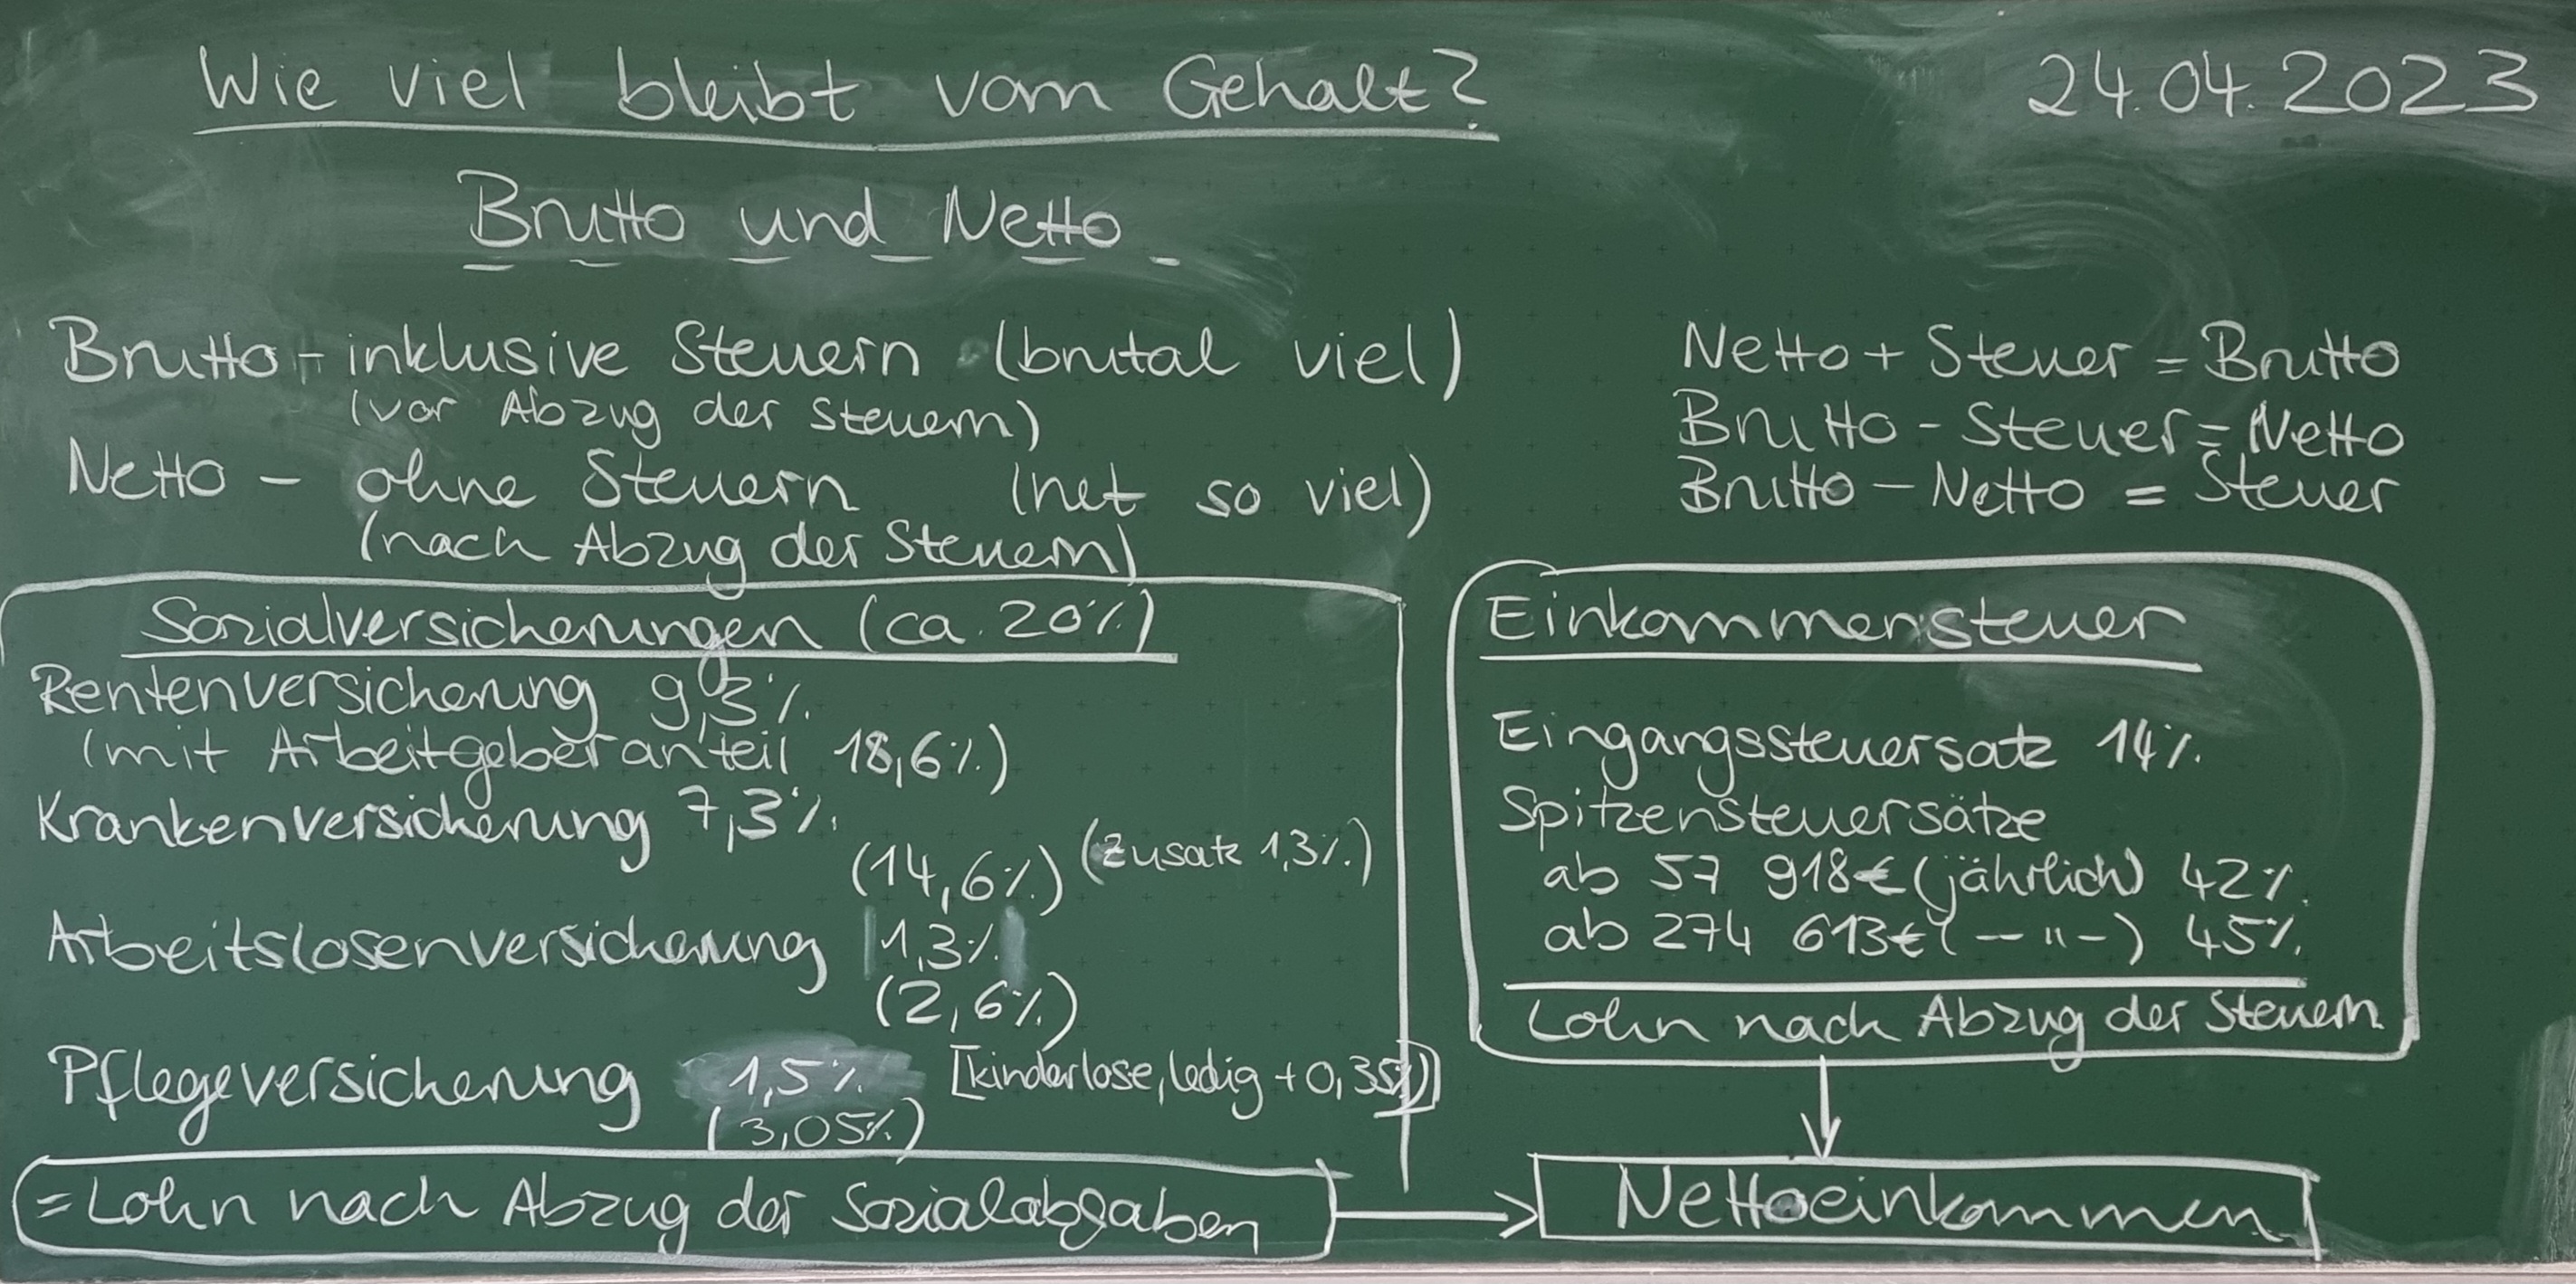 Wie viel bleibt vom Gehalt?
24.04.2023
Brutto und Netto
Brutto - inklusive Steuern (brutal viel)
(vor Abzug der Steuern)
Netto - ohne Steuern (net so viel)
(nach Abzug der Steuern)
Netto + Steuer = Brutto
Brutto - Steuer = Netto
Brutto - Netto = Steuer
Sozialversicherungen (ca. 20%)
Rentenversicherung 9,3%
(mit Arbeitgeberanteil 18,6%)
Krankenversicherung 7,3%
(14,6%) (Zusatz 1,3%)
Arbeitslosenversicherung 1,3%
(2,6%)
Pflegeversicherung 1,5% [kinderlose, ledig + 0,35%]
(3,05%)
= Lohn nach Abzug der Sozialabgaben
Einkommensteuer
Eingangssteuersatz 14%
Spitzensteuersätze
ab 57 918€ (jährlich) 42%
ab 274 613€ (- " -) 45%
Lohn nach Abzug der Steuern
Nettoeinkommen